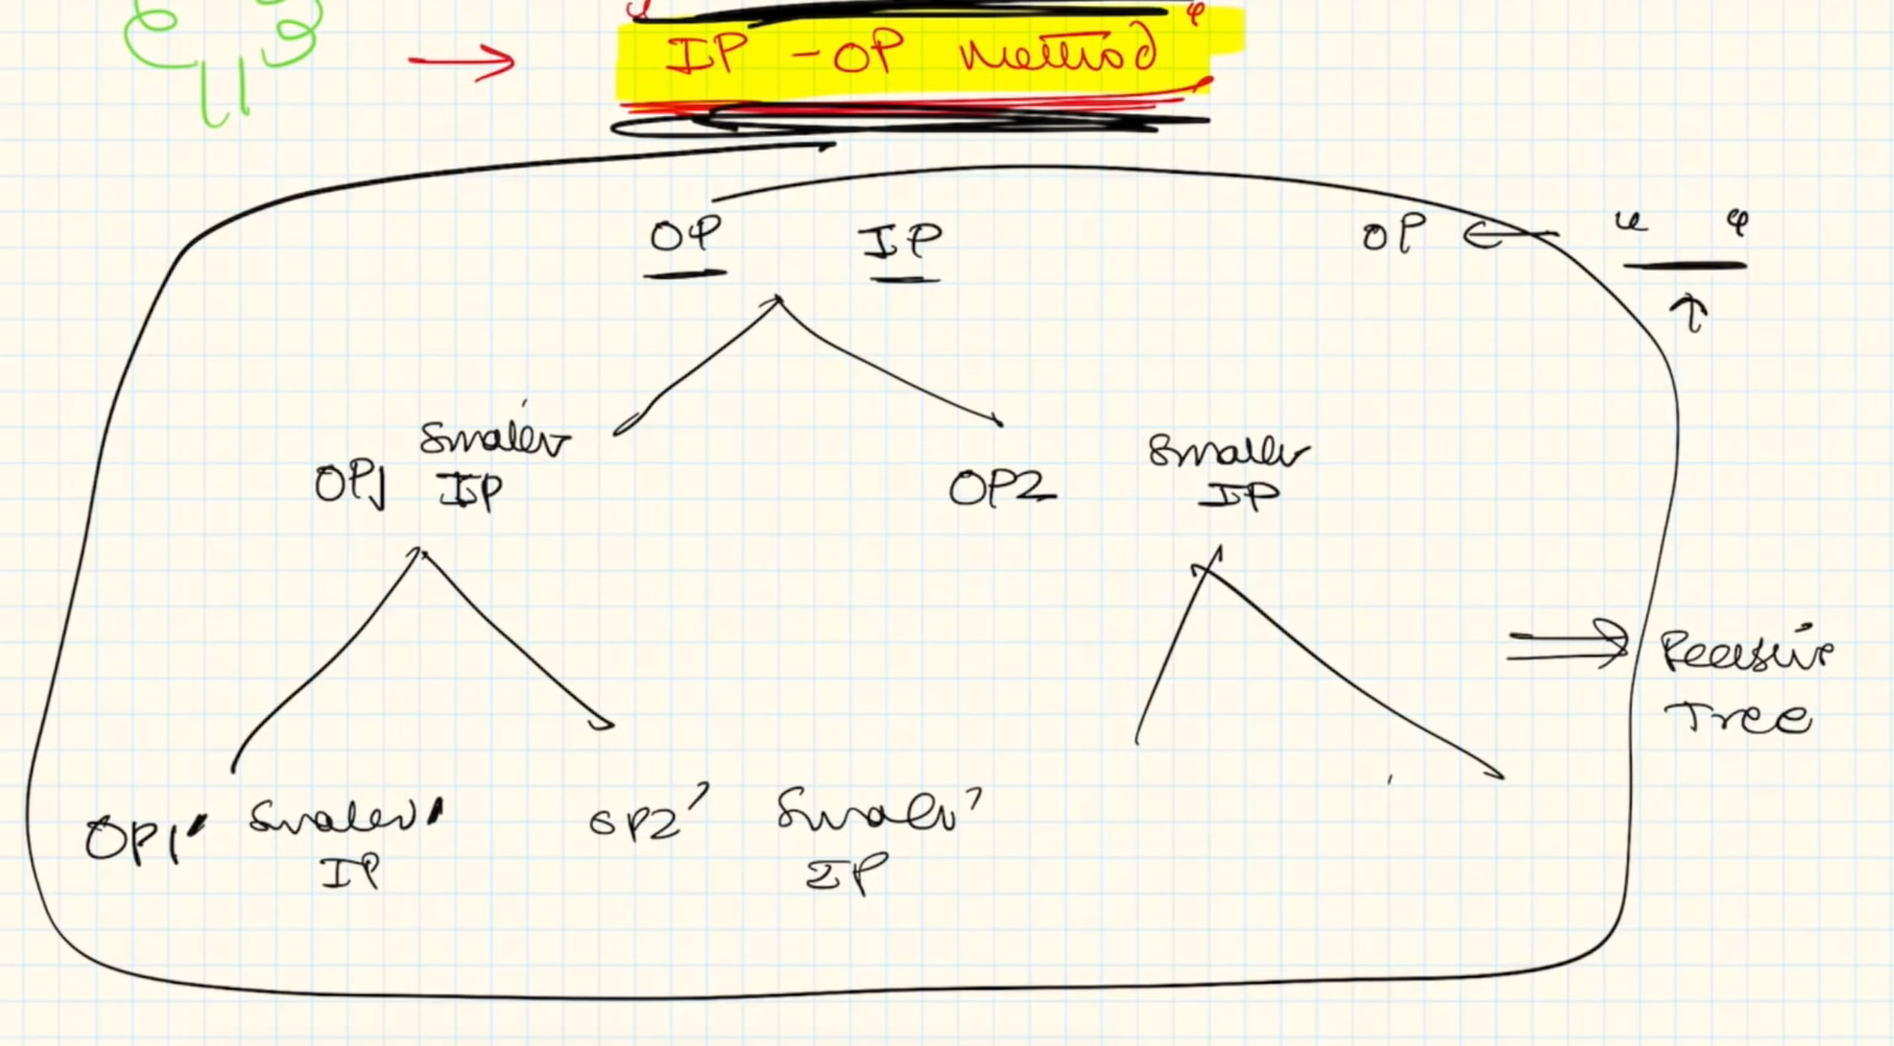 IP - OP Method
OP IP
OP ← " "
Smaller
OP1 IP
Smaller
OP2 IP
Recursive
Tree
OP1' Smaller'
IP
OP2' Smaller'
IP